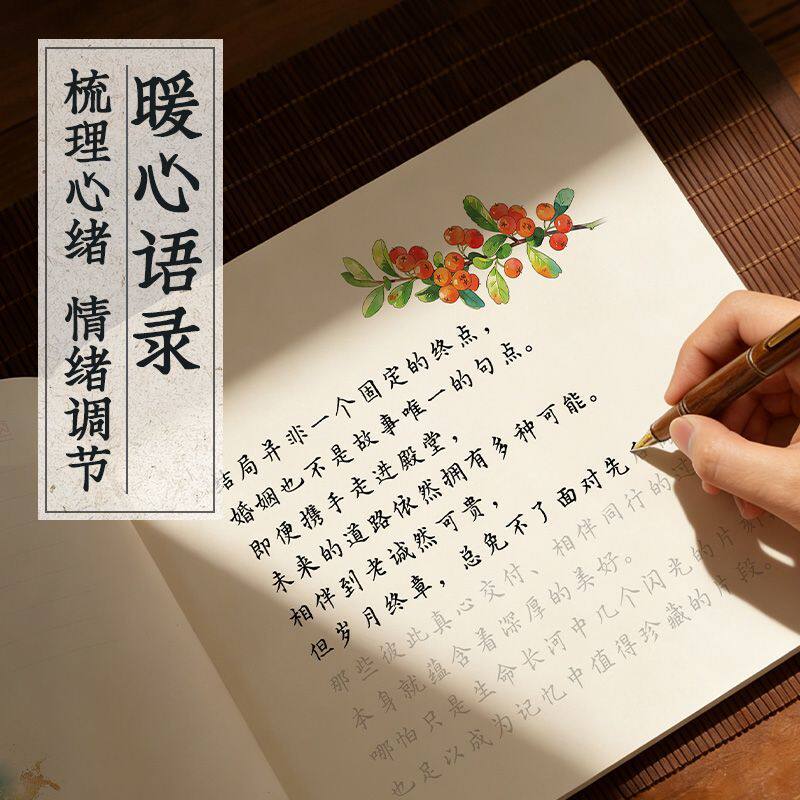 暖心语录
梳理心绪 情绪调节
结局并非一个固定的终点，
婚姻也不是故事唯一的句点。
即便携手走进殿堂，
未来的道路依然拥有多种可能。
相伴到老诚然可贵，
但岁月终章，总免不了面对先
那些彼此真心交付、相伴同行的
本身就蕴含着深厚的美好。
哪怕只是生命长河中几个闪光的片刻
也足以成为记忆中值得珍藏的片段。